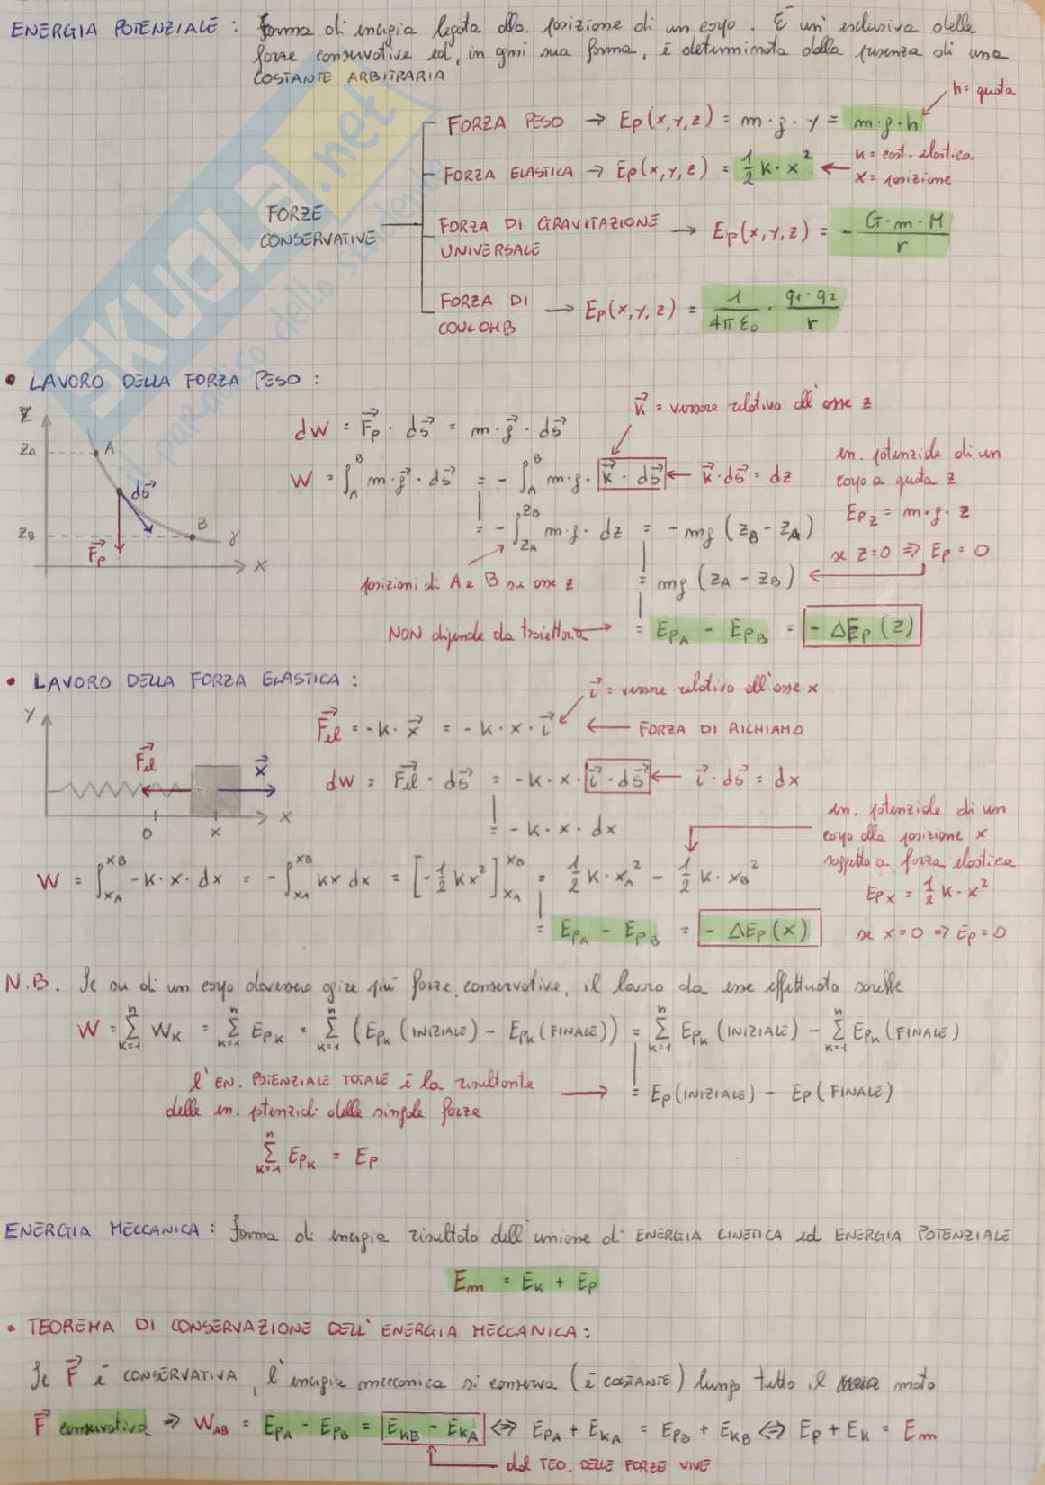 ENERGIA POTENZIALE : forma di energia legata alla posizione di un corpo. È un'esclusiva delle
forze conservative ed, in ogni sua forma, è determinata dalla presenza di una
COSTANTE ARBITRARIA
h = quota
FORZA PESO → Ep(x,y,z) = m·g·y = m·g·h
FORZA ELASTICA → Ep(x,y,z) = 1/2 k·x² ← k = cost. elastica
x = posizione
FORZE
CONSERVATIVE
FORZA DI GRAVITAZIONE
UNIVERSALE → Ep(x,y,z) = - G·m·M / r
FORZA DI
COULOMB → Ep(x,y,z) = 1/4πε₀ · q₁·q₂/r
SKUOLA.net
• LAVORO DELLA FORZA PESO :
k⃗ = versore relativo all'asse z
Z
Z_A
A
ds⃗
Z_B
B
γ
F⃗p
X
dW = F⃗p · ds⃗ = m·g⃗ · ds⃗
W = ∫_A^B m·g⃗ · ds⃗ = - ∫_A^B m·g· k⃗ · ds⃗ ← k⃗·ds⃗ = dz
= - ∫_{Z_A}^{Z_B} m·g· dz = - mg (Z_B - Z_A)
posizioni di A e B su asse z
= mg (Z_A - Z_B)
NON dipende da traiettoria → = Ep_A - Ep_B = - ΔEp(z)
en. potenziale di un
corpo a quota z
Ep_z = m·g·z
se z=0 ⇒ Ep = 0
• LAVORO DELLA FORZA ELASTICA :
i⃗ = versore relativo all'asse x
Y
F⃗el
x⃗
0
x
X
F⃗el = -k·x⃗ = -k·x·i⃗ ← FORZA DI RICHIAMO
dW = F⃗el · ds⃗ = -k·x· i⃗·ds⃗ ← i⃗·ds⃗ = dx
= -k·x·dx
W = ∫_{x_A}^{x_B} -k·x·dx = - ∫_{x_A}^{x_B} kx dx = [-1/2 kx²]_{x_A}^{x_B} = 1/2 k·x_A² - 1/2 k·x_B²
= Ep_A - Ep_B = - ΔEp(x)
en. potenziale di un
corpo alla posizione x
soggetto a forza elastica
Ep_x = 1/2 k·x²
se x=0 ⇒ Ep=0
N.B. Se su di un corpo dovessero agire più forze conservative, il lavoro da esse effettuato sarebbe
W = Σ_{k=1}^n W_k = Σ_{k=1}^n Ep_k = Σ_{k=1}^n (Ep_k (INIZIALE) - Ep_k (FINALE)) = Σ_{k=1}^n Ep_k (INIZIALE) - Σ_{k=1}^n Ep_k (FINALE)
l'EN. POTENZIALE TOTALE è la risultante → = Ep (INIZIALE) - Ep (FINALE)
delle en. potenziali delle singole forze
Σ_{k=1}^n Ep_k = Ep
ENERGIA MECCANICA : forma di energia risultato dell'unione di ENERGIA CINETICA ed ENERGIA POTENZIALE
Em = Ek + Ep
• TEOREMA DI CONSERVAZIONE DELL'ENERGIA MECCANICA :
Se F⃗ è CONSERVATIVA, l'energia meccanica si conserva (è COSTANTE) lungo tutto il moto
F⃗ conservativa ⇒ W_AB = Ep_A - Ep_B = Ek_B - Ek_A ⟺ Ep_A + Ek_A = Ep_B + Ek_B ⟺ Ep + Ek = Em
dal TEO. DELLE FORZE VIVE